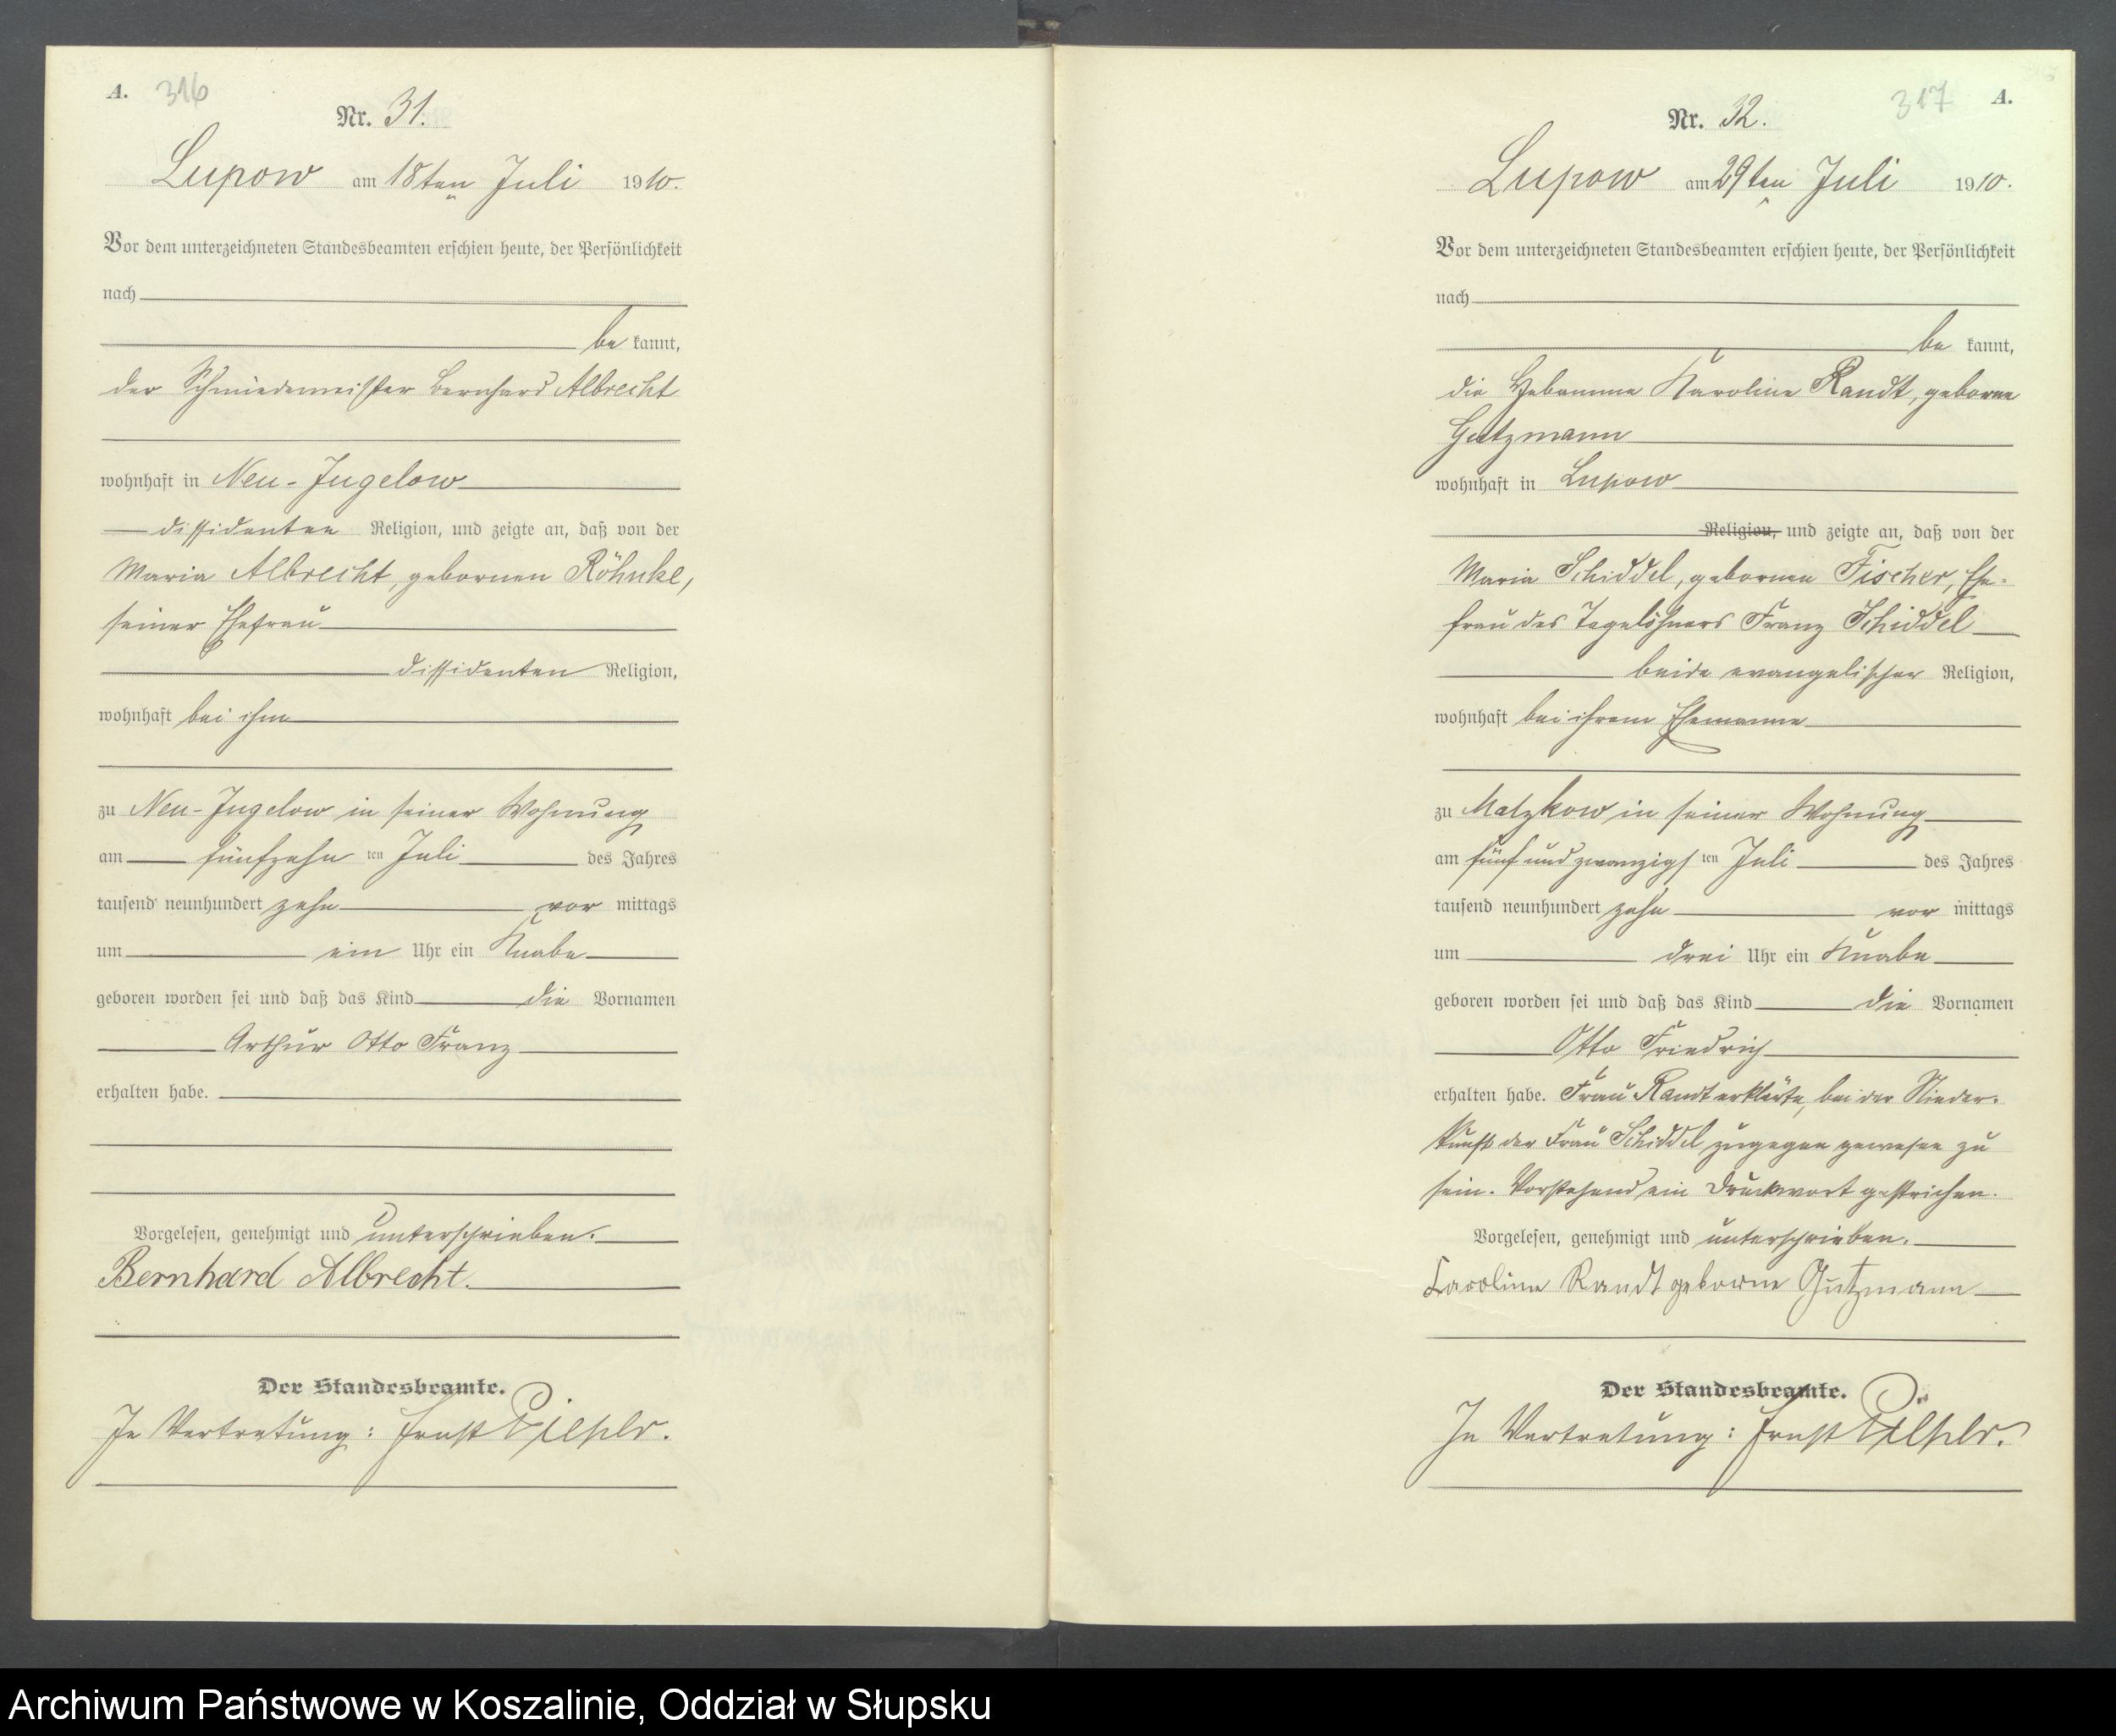 A. 316
Nr. 31.
Lupow am 18ten Juli 1910.
Vor dem unterzeichneten Standesbeamten erschien heute, der Persönlichkeit
nach
be kannt,
der Schmiedemeister Bernhard Albrecht
wohnhaft in Neu-Jugelow
dissidenten Religion, und zeigte an, daß von der
Maria Albrecht, gebornen Röhnke,
seiner Ehefrau
dissidenten Religion,
wohnhaft bei ihm
zu Neu-Jugelow in seiner Wohnung
am fünfzehn ten Juli des Jahres
tausend neunhundert zehn vor mittags
um ein Uhr ein Knabe
geboren worden sei und daß das Kind die Vornamen
Arthur Otto Franz
erhalten habe.
Vorgelesen, genehmigt und unterschrieben.
Bernhard Albrecht.
Der Standesbeamte.
In Vertretung: Ernst
317 A.
Nr. 32.
Lupow am 29ten Juli 1910.
Vor dem unterzeichneten Standesbeamten erschien heute, der Persönlichkeit
nach
be kannt,
die Hebamme Karoline Randt, geborne
Gutzmann
wohnhaft in Lupow
Religion, und zeigte an, daß von der
Maria Schiddel, gebornen Fischer, Ehe-
frau des Tagelöhners Franz Schiddel
beide evangelischer Religion,
wohnhaft bei ihrem Ehemanne
zu Malzkow in seiner Wohnung
am fünf und zwanzigs ten Juli des Jahres
tausend neunhundert zehn vor mittags
um drei Uhr ein Knabe
geboren worden sei und daß das Kind die Vornamen
Otto Friedrich
erhalten habe. Frau Randt erklärte, bei der Nieder-
kunft der Frau Schiddel zugegen gewesen zu
sein. Vorstehend ein Druckwort gestrichen.
Vorgelesen, genehmigt und unterschrieben.
Caroline Randt geborne Gutzmann
Der Standesbeamte.
In Vertretung: Ernst
Archiwum Państwowe w Koszalinie, Oddział w Słupsku